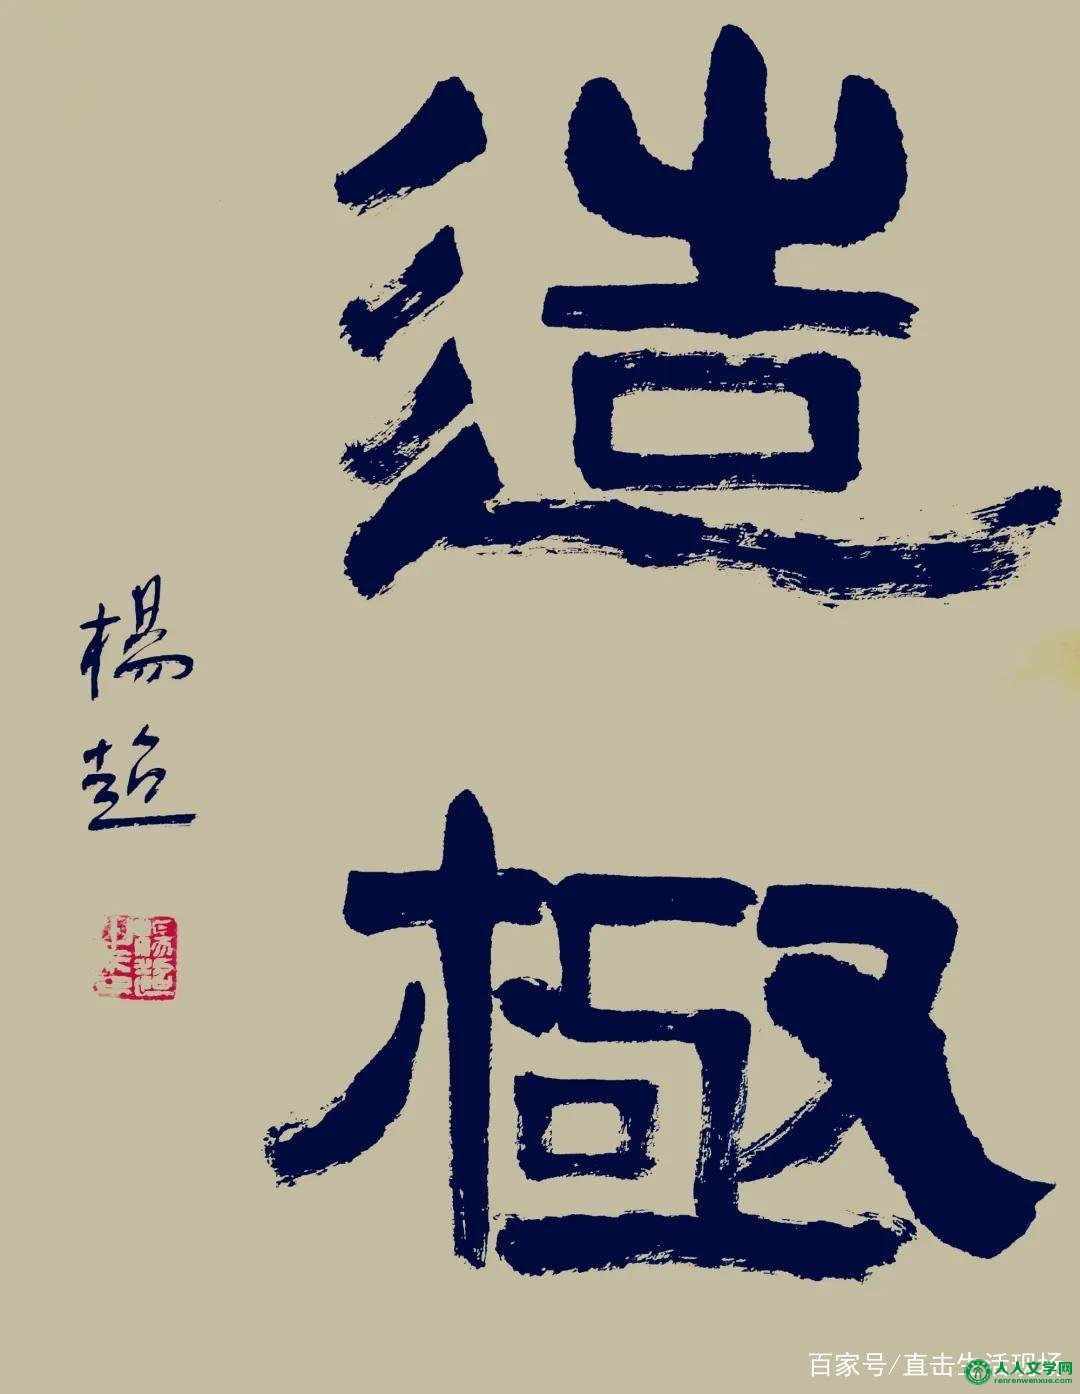 造極
楊超
百家号/直击生活现场
人人文学网
renrenwenxue.com